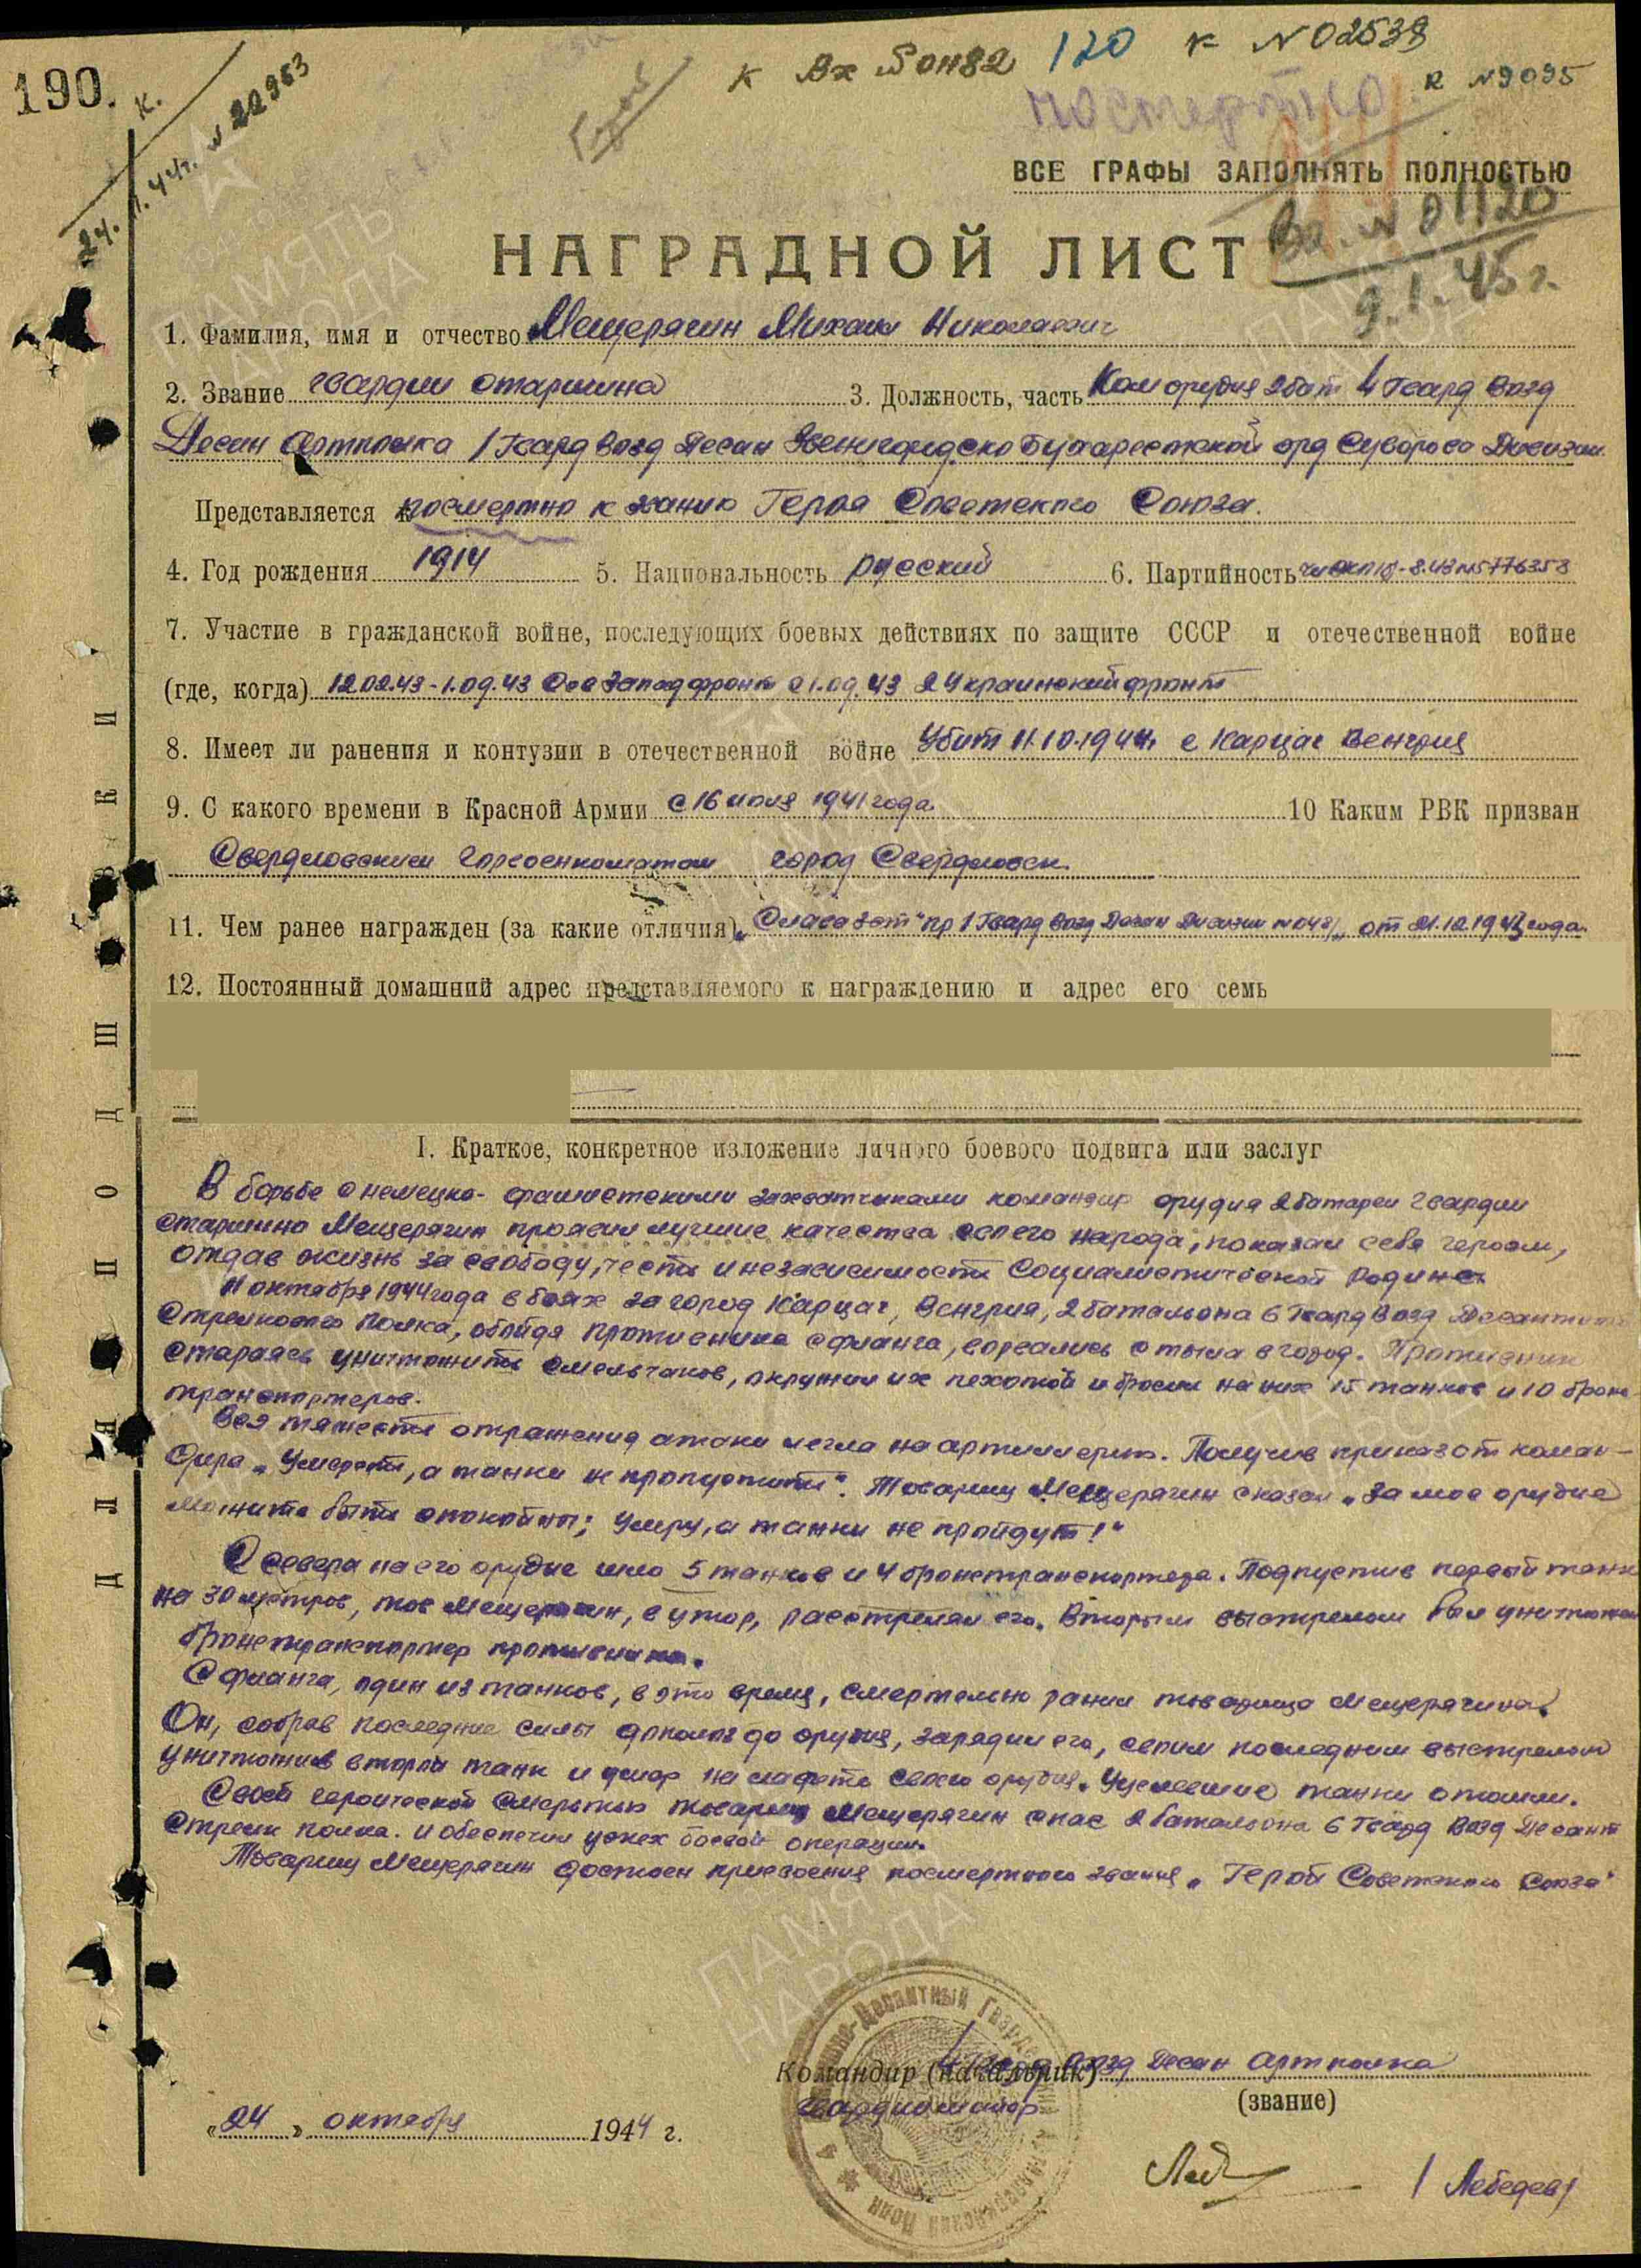 190.
К.
24.11.44г. №22963
Герой
к Вх №01182 120 к №02538
к №9095
посмертно
ВСЕ ГРАФЫ ЗАПОЛНЯТЬ ПОЛНОСТЬЮ
Вх. №01120
9.1.45г.
НАГРАДНОЙ ЛИСТ
1. Фамилия, имя и отчество Мещерягин Михаил Николаевич
2. Звание гвардии старшина 3. Должность, часть Ком орудия 2 бат 4 Гвард Возд
Десан Артполка 1 Гвард Возд Десан Звенигородско Бухарестской орд Суворова Дивизии.
Представляется к посмертно к званию Героя Советского Союза.
4. Год рождения 1914 5. Национальность русский 6. Партийность чл ВКП(б)-8.43 №5776353
7. Участие в гражданской войне, последующих боевых действиях по защите СССР и отечественной войне
(где, когда) 12.02.43-1.09.43 Сев Запад фронт с 1.09.43 2 Украинский фронт
8. Имеет ли ранения и контузии в отечественной войне Убит 11.10.1944г. г Карцаг Венгрия
9. С какого времени в Красной Армии с 16 июля 1941 года 10 Каким РВК призван
Свердловским Горвоенкоматом город Свердловск.
11. Чем ранее награжден (за какие отличия) „Слава 3 ст" пр 1 Гвард Возд Десан Дивизии №048/н от 21.12.1943 года.
12. Постоянный домашний адрес представляемого к награждению и адрес его семь
ДЛЯ ПОДШИВКИ
I. Краткое, конкретное изложение личного боевого подвига или заслуг
В борьбе с немецко-фашистскими захватчиками командир орудия 2 батареи гвардии
старшина Мещерягин проявил лучшие качества своего народа, показал себя героем,
отдав жизнь за свободу, честь и независимость Социалистической Родины.
11 октября 1944 года в боях за город Карцаг, Венгрия, 2 батальона 6 Гвард Возд Десантного
Стрелкового Полка, обойдя противника с фланга, ворвались с тыла в город. Противник
стараясь уничтожить смельчаков, окружил их пехотой и бросил на них 15 танков и 10 броне-
транспортеров.
Вся тяжесть отражения атаки легла на артиллерию. Получив приказ от коман-
дира „Умереть, а танки не пропустить". Товарищ Мещерягин сказал „За мое орудие
можите быть спокойны; умру, а танки не пройдут!"
С севера на его орудие шло 5 танков и 4 бронетранспортера. Подпустив первый танк
на 30 метров, тов Мещерягин, в упор, расстрелял его. Вторым выстрелом был уничтожен
бронетранспортер противника.
С фланга, один из танков, в это время, смертельно ранил товарища Мещерягина.
Он, собрав последние силы дополз до орудия, зарядил его, своим последним выстрелом
уничтожив второй танк и умер на лафете своего орудия. Уцелевшие танки отошли.
Своей героической смертью товарищ Мещерягин спас 2 батальона 6 Гвард Возд Десант
Стрелк полка. и обеспечил успех боевой операции.
Товарищ Мещерягин достоин присвоения посмертного звания „Герой Советского Союза"
Командир (начальник) 4 Гвард Возд Десан Артполка
(звание)
гвардии майор
«24» октября 1944 г.
/Лебедев/
ПАМЯТЬ
НАРОДА